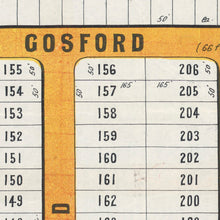 50' 82
GOSFORD (66 f
155 50' 156 206 50'
154 50' 50' 157 165' 165' 205 50'
153 158 204
152 159 203
151 160 202
150 161 201
149 162 200
148 163 199
D